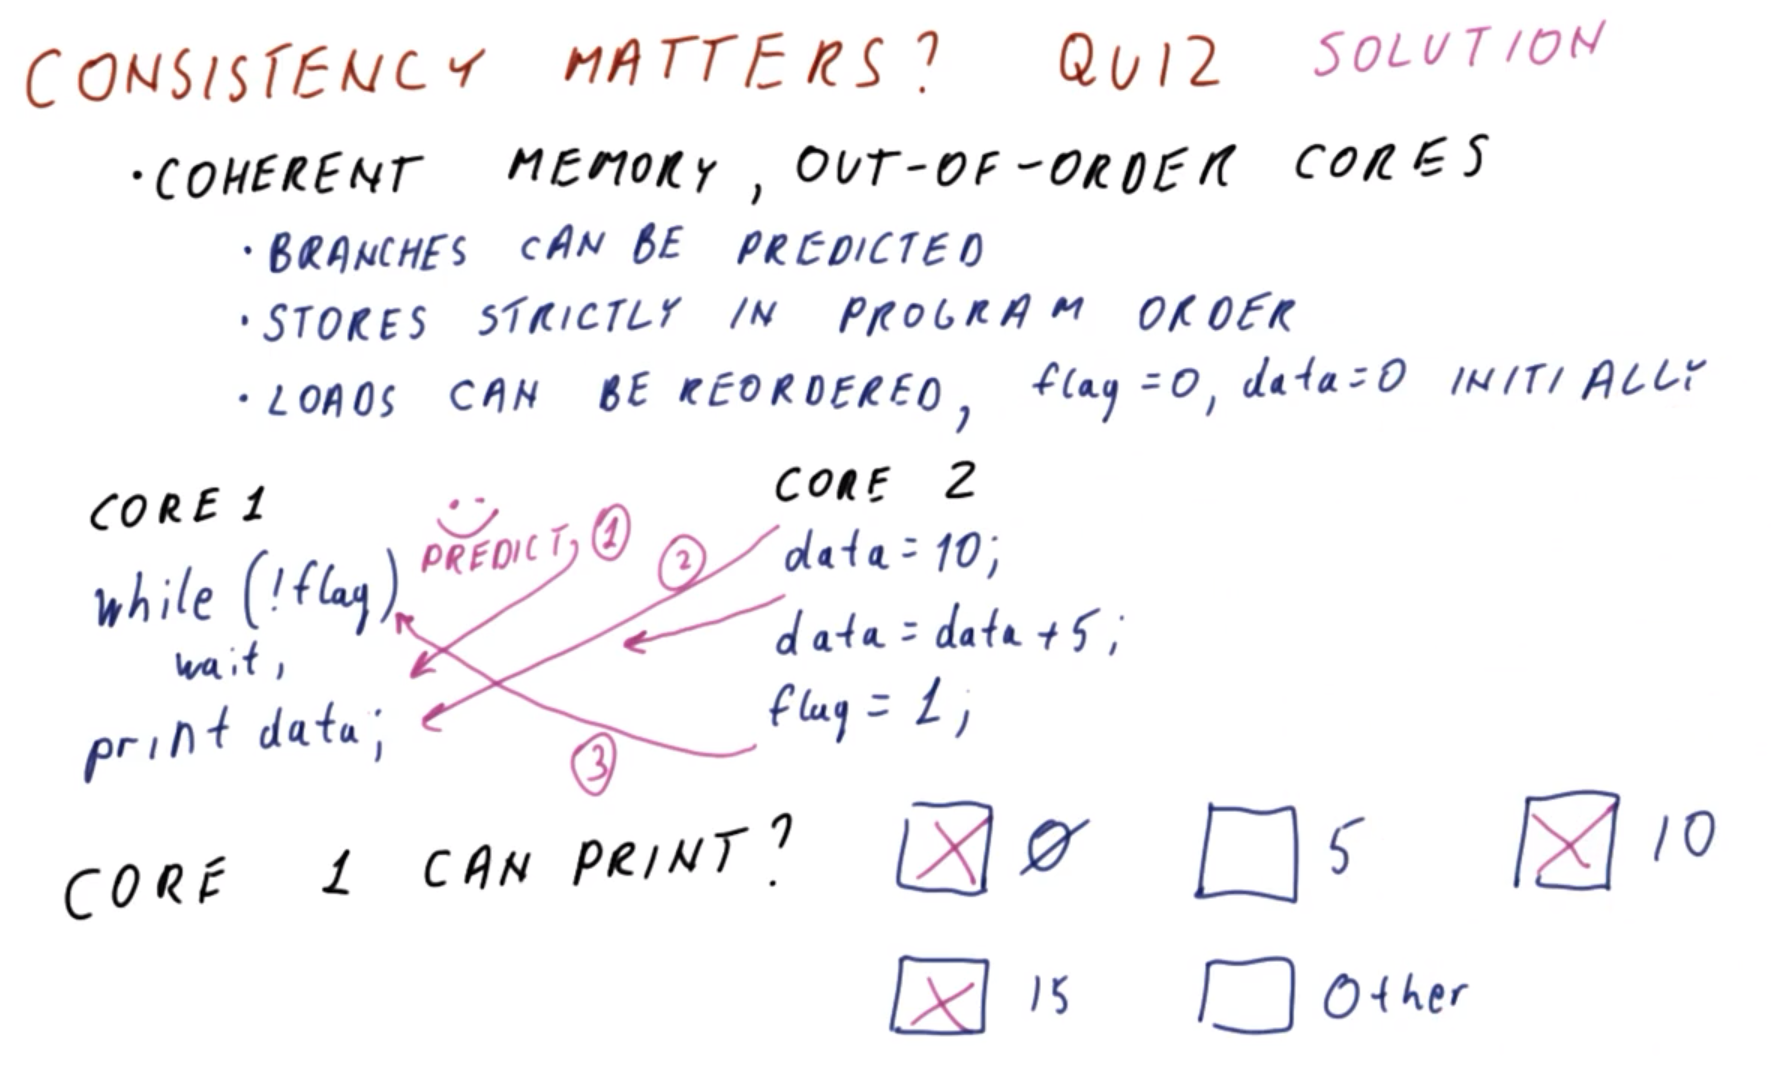 CONSISTENCY MATTERS? QUIZ SOLUTION
• COHERENT MEMORY, OUT-OF-ORDER CORES
• BRANCHES CAN BE PREDICTED
• STORES STRICTLY IN PROGRAM ORDER
• LOADS CAN BE REORDERED, flag = 0, data = 0 INITIALLY
CORE 1
PREDICT, 1
while (!flag)
wait;
print data;
2
3
CORE 2
data = 10;
data = data + 5;
flag = 1;
CORE 1 CAN PRINT?
X 0
5
X 10
X 15
Other